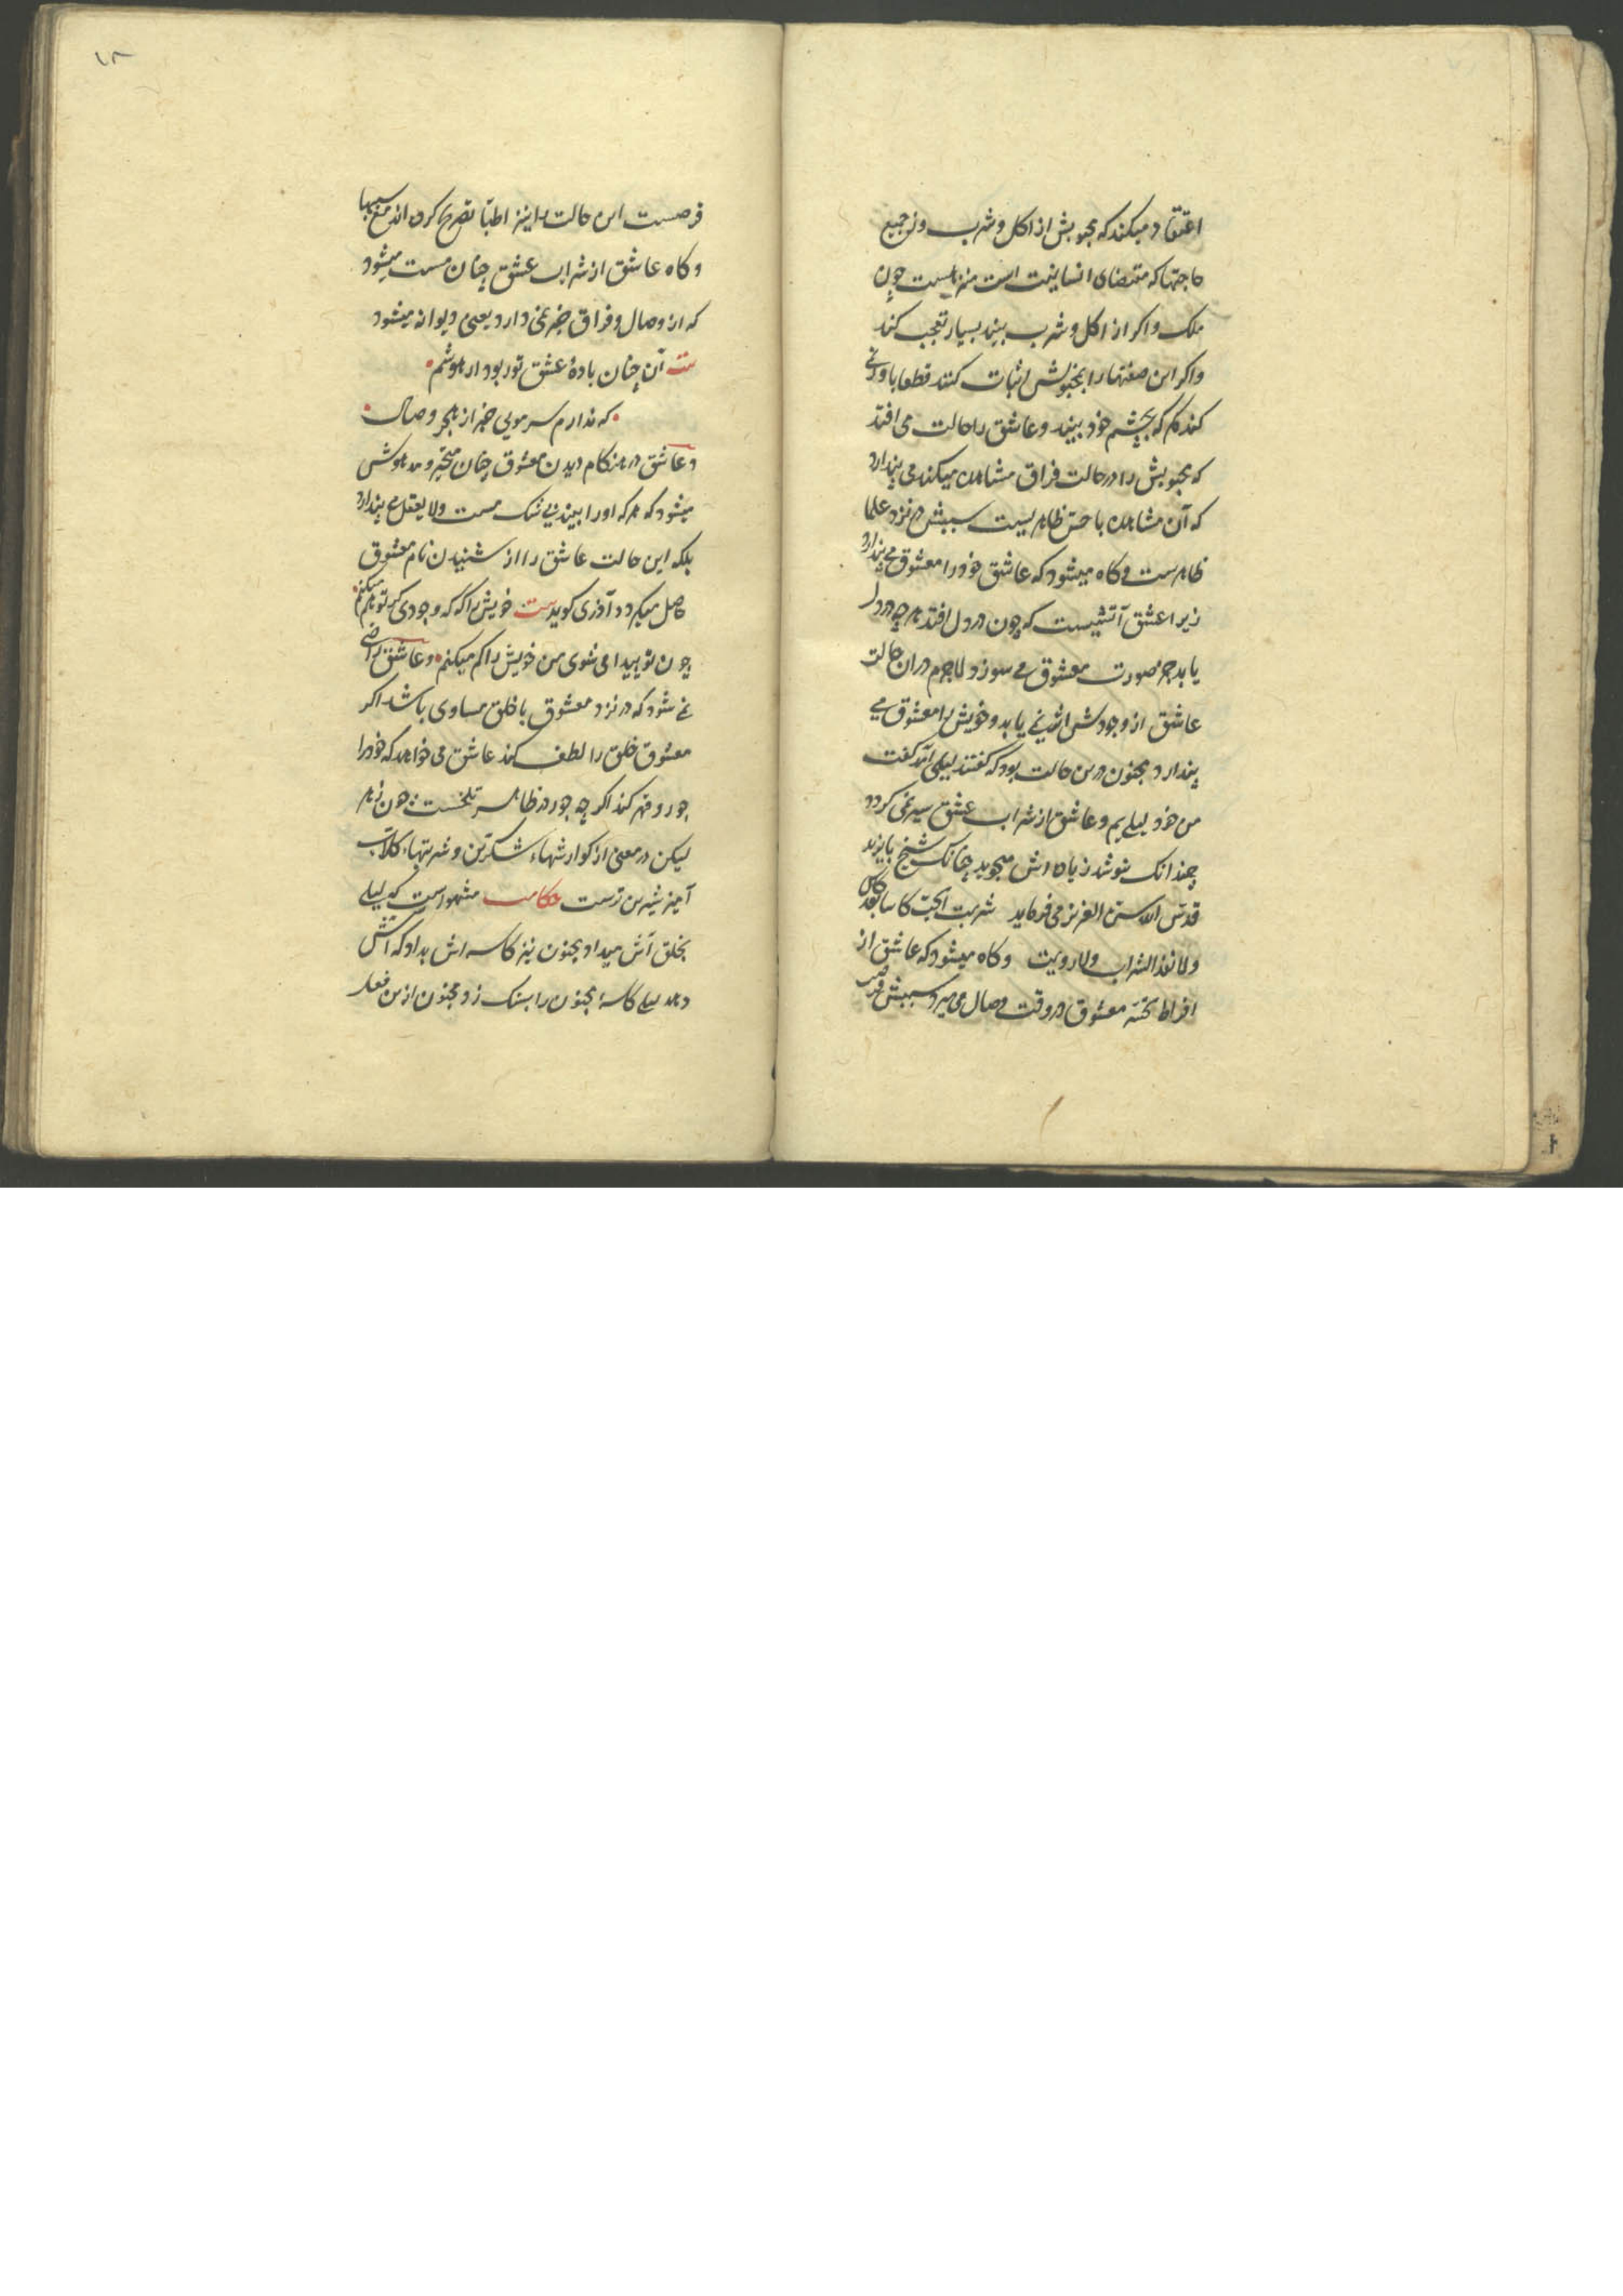 اعتقاد میکند که محبوبش از اکل و شرب و از جمیع
حاجتها که مقتضای انسانیت است منزه است چون
ملک و اکر از اکل و شرب بیند بسیار تعجب کند
و اکر این صفتها را بمحبوبش اثبات کنند قطعا باور نی
کند مکر که بچشم خود ببیند و عاشق را حالت می افتد
که محبوبش را در حالت فراق مشاهده میکند می پندارد
که آن مشاهده با حس ظاهریست سببش در نزد علما
ظاهرست و کاه میشود که عاشق خود را معشوق می پندارد
زیرا عشق آتشیست که چون در دل افتد هر چه در دل
یابد جز صورت معشوق می سوزد لاجرم در ان حالت
عاشق از وجودش اثر نمی یابد و خویش را معشوق می
پندارد مجنون درین حالت بود که کفتند لیلی آمد کفت
من خود لیلی یم و عاشق از شراب عشق سیر نمی کردد
چندانک نوشد زیاده اش میجوید چنانک شیخ بایزید
قدس الله سره العزیز می فرماید شربت الحب کاسا بعد کاس
ولا نفد الشراب ولا رویت و کاه میشود که عاشق از
افراط معشوق در وقت وصال می میرد سببش
فرحست این حالت را نیز اطبا تصریح کرده اند مع سببها
و کاه عاشق از شراب عشق چنان مست میشود
که از وصال و فراق خبر نمی دارد یعنی دیوانه میشود
بیت آن چنان بادهٔ عشق تو ربود از هوشم
که ندارم سر مویی خبر از هجر و وصال
و عاشق در هنکام دیدن معشوق چنان متحیر و مدهوش
میشود که هر که او را بیند بی شک مست و لا یعقل می پندارد
بلکه این حالت عاشق را از شنیدن نام معشوق
حاصل میکردد آذری کوید بیت خویش را که که وجودی بتوهم میکنم
چون تو پیدا می شوی من خویش را کم میکنم و عاشق راضی
نمی شود که در نزد معشوق با خلق مساوی باشد اکر
معشوق خلق را لطف کند عاشق می خواهد که خود را
جور و قهر کند اکر چه جور در ظاهر تلخست چون زهر
لیکن در معنی از کوارشهاء شکرین و شربتهاء کلاب
آمیز شیرین ترست حکایت مشهورست که لیلی
بخلق آش میداد مجنون نیز کاسه اش بداد که آتش
دهد لیلی کاسهٔ مجنون را بسنک زد مجنون ازین فعل